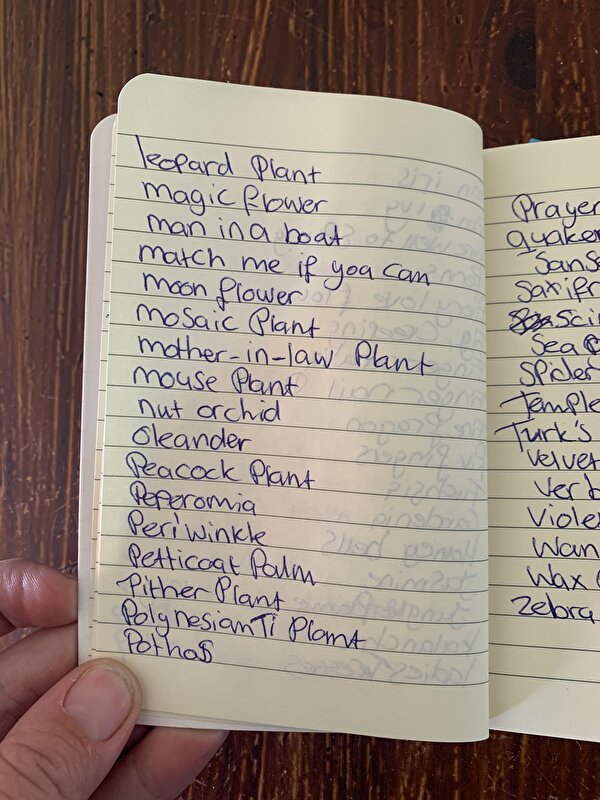 leopard Plant
magic flower
man in a boat
match me if you can
moon flower
mosaic Plant
mother-in-law Plant
mouse Plant
nut orchid
oleander
Peacock Plant
Peperomia
Periwinkle
Petticoat Palm
Pither Plant
Polynesian Ti Plamt
Pothas
Prayer
quaker
Sanse
Saxifr
Sci
Sea
Spider
Temple
Turk's
Velvet
Verb
Viole
Wan
Wax
Zebra